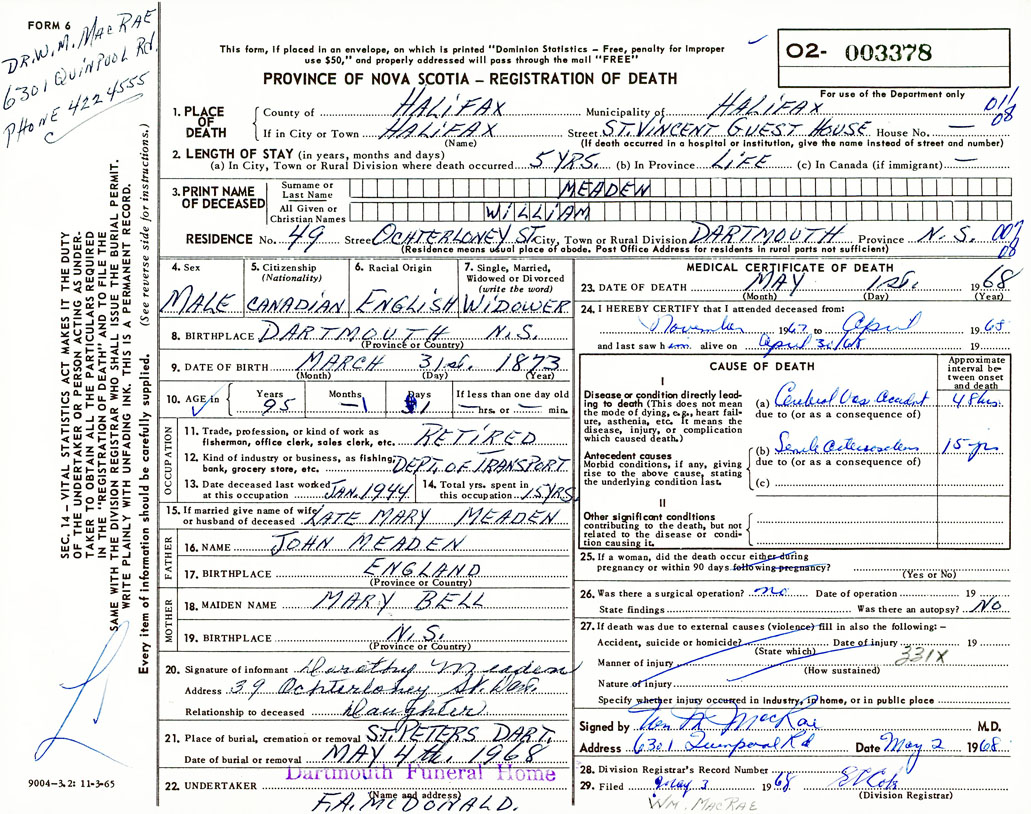 FORM 6
DR. W. M. MACRAE
6301 QUINPOOL RD.
PHONE 4224555
This form, if placed in an envelope, on which is printed "Dominion Statistics – Free, penalty for improper
use $50," and properly addressed will pass through the mail "FREE"
PROVINCE OF NOVA SCOTIA – REGISTRATION OF DEATH
02- 003378
For use of the Department only
011
08
1. PLACE OF DEATH
County of HALIFAX Municipality of HALIFAX
If in City or Town HALIFAX Street ST. VINCENT GUEST HOUSE House No. —
(Name) (If death occurred in a hospital or institution, give the name instead of street and number)
2. LENGTH OF STAY (in years, months and days)
(a) In City, Town or Rural Division where death occurred 5 YRS. (b) In Province LIFE (c) In Canada (if immigrant) —
3. PRINT NAME OF DECEASED
Surname or Last Name MEADEN
All Given or Christian Names WILLIAM
RESIDENCE No. 49 Street OCHTERLONEY ST. City, Town or Rural Division DARTMOUTH Province N.S. 007
08
(Residence means usual place of abode. Post Office Address for residents in rural parts not sufficient)
4. Sex MALE
5. Citizenship (Nationality) CANADIAN
6. Racial Origin ENGLISH
7. Single, Married, Widowed or Divorced (write the word) WIDOWER
8. BIRTHPLACE DARTMOUTH N.S.
(Province or Country)
9. DATE OF BIRTH MARCH 31st. 1873
(Month) (Day) (Year)
10. AGE in Years 95 Months –1 Days 1 If less than one day old — hrs. or — min.
OCCUPATION
11. Trade, profession, or kind of work as fisherman, office clerk, sales clerk, etc. RETIRED
12. Kind of industry or business, as fishing, bank, grocery store, etc. DEPT. OF TRANSPORT
13. Date deceased last worked at this occupation JAN. 1944
14. Total yrs. spent in this occupation 15 YRS
15. If married give name of wife or husband of deceased LATE MARY MEADEN
FATHER
16. NAME JOHN MEADEN
17. BIRTHPLACE ENGLAND
(Province or Country)
MOTHER
18. MAIDEN NAME MARY BELL
19. BIRTHPLACE N.S.
(Province or Country)
20. Signature of informant Dorothy Meaden
Address 39 Ochterloney St. Dart.
Relationship to deceased Daughter
21. Place of burial, cremation or removal ST. PETERS DART.
Date of burial or removal MAY 4th. 1968
Dartmouth Funeral Home
22. UNDERTAKER
(Name and address)
F.A. MCDONALD.
MEDICAL CERTIFICATE OF DEATH
23. DATE OF DEATH MAY 1st. 1968
(Month) (Day) (Year)
24. I HEREBY CERTIFY that I attended deceased from:
November 1967 to April 1968
and last saw him alive on April 30/68 19
CAUSE OF DEATH
Approximate interval between onset and death
I
Disease or condition directly leading to death (This does not mean the mode of dying, e.g., heart failure, asthenia, etc. It means the disease, injury, or complication which caused death.)
(a) Cerebral Vas accident 48 hrs.
due to (or as a consequence of)
Antecedent causes
Morbid conditions, if any, giving rise to the above cause, stating the underlying condition last.
(b) Senile arteriosclerosis 15 yrs
due to (or as a consequence of)
(c)
II
Other significant conditions
contributing to the death, but not related to the disease or condition causing it.
25. If a woman, did the death occur either during
pregnancy or within 90 days following pregnancy?
(Yes or No)
26. Was there a surgical operation? no Date of operation 19
State findings Was there an autopsy? No
27. If death was due to external causes (violence) fill in also the following: –
Accident, suicide or homicide? Date of injury 19
(State which) 331X
Manner of injury
(How sustained)
Nature of injury
Specify whether injury occurred in industry, in home, or in public place
Signed by Wm M MacRae M.D.
Address 6301 Quinpool Rd Date May 2 1968
28. Division Registrar's Record Number
29. Filed May 3 1968
(Division Registrar)
WM. MACRAE
SEC. 14 – VITAL STATISTICS ACT MAKES IT THE DUTY
OF THE UNDERTAKER OR PERSON ACTING AS UNDER-
TAKER TO OBTAIN ALL THE PARTICULARS REQUIRED
IN THE "REGISTRATION OF DEATH" AND TO FILE THE
SAME WITH THE DIVISION REGISTRAR WHO SHALL ISSUE THE BURIAL PERMIT.
WRITE PLAINLY WITH UNFADING INK. THIS IS A PERMANENT RECORD.
Every item of information should be carefully supplied. (See reverse side for instructions.)
9004–3.2: 11-3-65